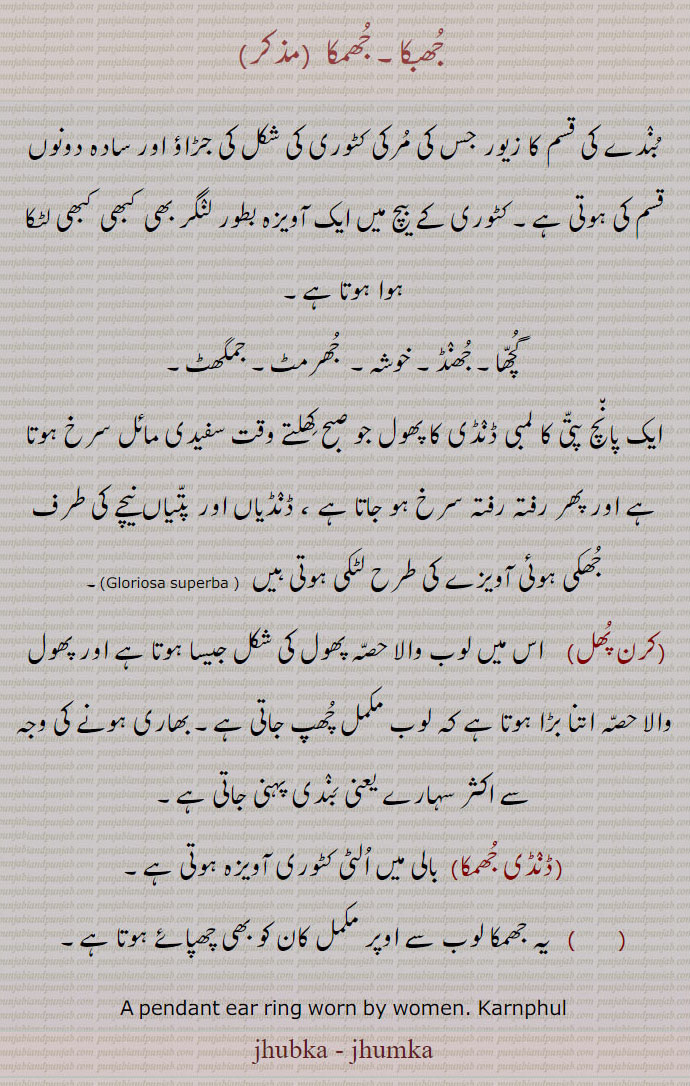 جُھبکا ۔ جُھمکا (مذکر)
بُنْدے کی قسم کا زیور جس کی مُرکی کٹوری کی شکل کی جڑاؤ اور سادہ دونوں
قسم کی ہوتی ہے ۔ کٹوری کے بیچ میں ایک آویزہ بطور لنگر بھی کبھی کبھی لٹکا
ہوا ہوتا ہے ۔
گُچھّا ۔ جُھنْڈ ۔ خوشہ ۔ جُھرمٹ ۔ جمگھٹ ۔
ایک پانْچ پتّی کا لمبی ڈنْڈی کا پھول جو صبح کِھلتے وقت سفیدی مائل سرخ ہوتا
ہے اور پھر رفتہ رفتہ سرخ ہو جاتا ہے ، ڈنْڈیاں اور پتّیاں نیچے کی طرف
جُھکی ہوئی آویزے کی طرح لٹکی ہوتی ہیں (Gloriosa superba ) ۔
(کرن پُھل) اس میں لوب والا حصّہ پھول کی شکل جیسا ہوتا ہے اور پھول
والا حصّہ اتنا بڑا ہوتا ہے کہ لوب مکمل چُھپ جاتی ہے ۔ بھاری ہونے کی وجہ
سے اکثر سہارے یعنی بَنْدی پہنی جاتی ہے ۔
(ڈنْڈی جُھمکا) بالی میں اُلٹی کٹوری آویزہ ہوتی ہے ۔
( ) یہ جھمکا لوب سے اوپر مکمل کان کو بھی چھپائے ہوتا ہے ۔
A pendant ear ring worn by women. Karnphul
jhubka - jhumka